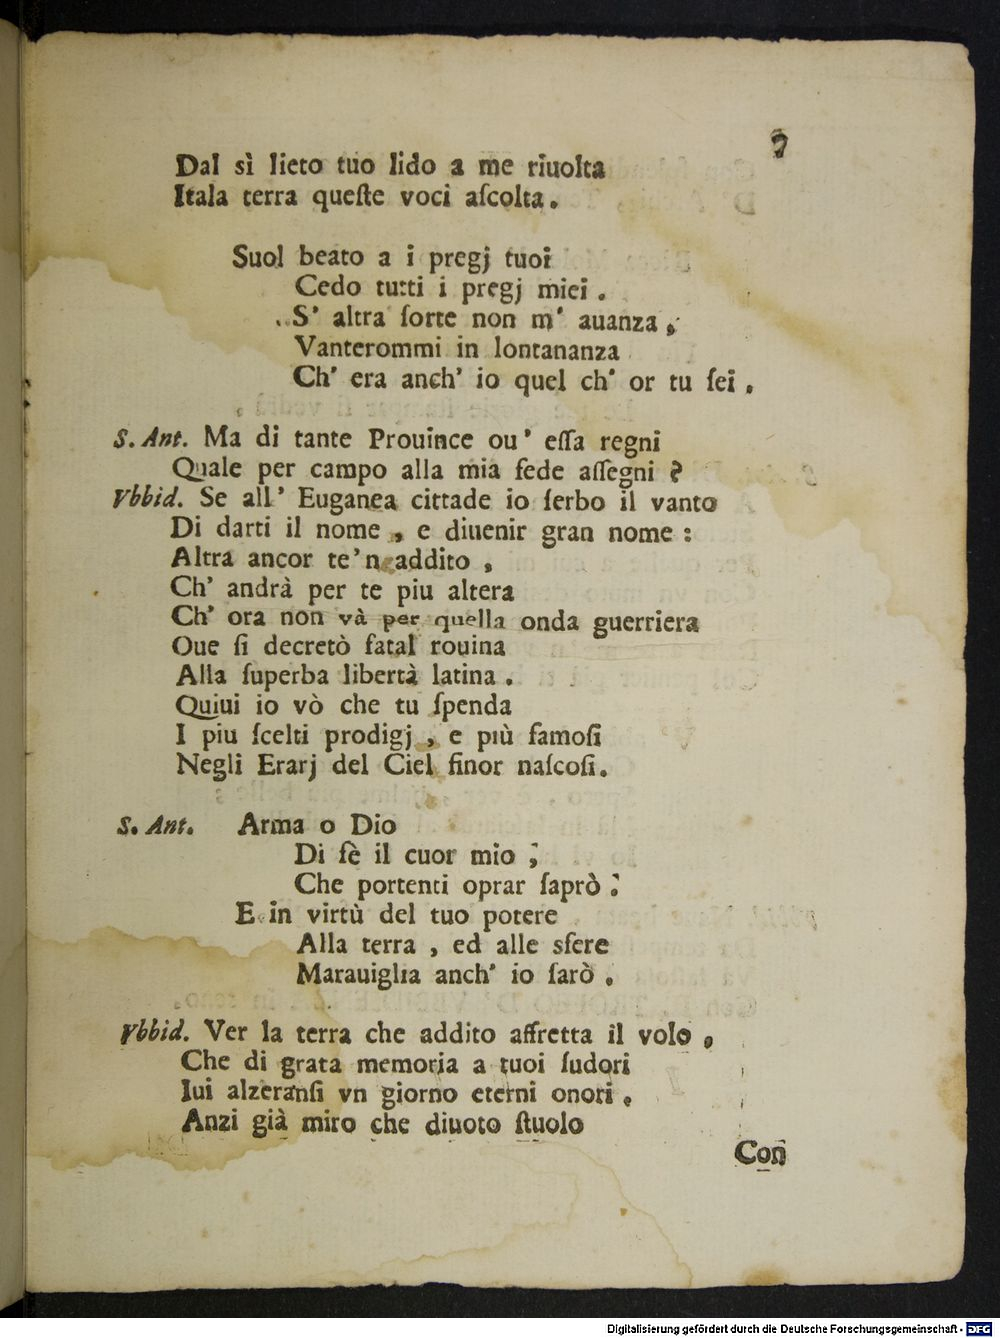 7
Dal sì lieto tuo lido a me riuolta
Itala terra queſte voci aſcolta.
Suol beato a i pregj tuoi
Cedo tutti i pregj miei.
S' altra ſorte non m' auanza,
Vanterommi in lontananza
Ch' era anch' io quel ch' or tu ſei.
S. Ant. Ma di tante Prouince ou' eſſa regni
Quale per campo alla mia fede aſſegni?
Vbbid. Se all' Euganea cittade io ſerbo il vanto
Di darti il nome, e diuenir gran nome:
Altra ancor te'n addito,
Ch' andrà per te piu altera
Ch' ora non và per quella onda guerriera
Oue ſi decretò fatal rouina
Alla ſuperba libertà latina.
Quiui io vò che tu ſpenda
I piu ſcelti prodigj, e più famoſi
Negli Erarj del Ciel finor naſcoſi.
S. Ant. Arma o Dio
Di ſè il cuor mio;
Che portenti oprar ſaprò:
E in virtù del tuo potere
Alla terra, ed alle sfere
Marauiglia anch' io ſarò.
Vbbid. Ver la terra che addito affretta il volo,
Che di grata memoria a tuoi ſudori
Iui alzeranſi vn giorno eterni onori.
Anzi già miro che diuoto ſtuolo
Con
Digitalisierung gefördert durch die Deutsche Forschungsgemeinschaft - DFG